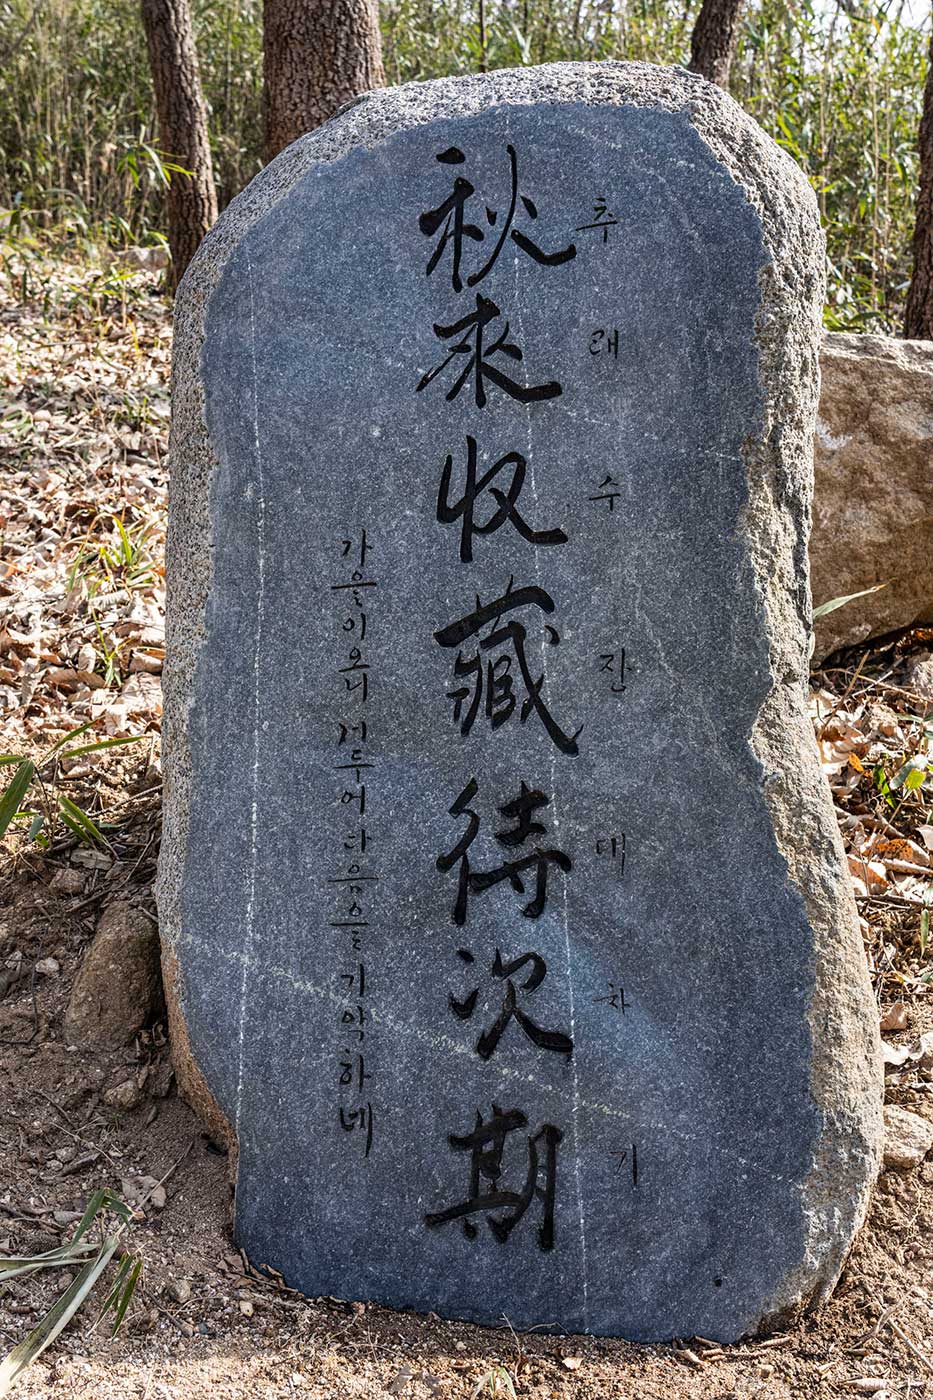 추래수잔대차기
秋來收藏待次期
가을이오니 거두어 다음을 기약하네